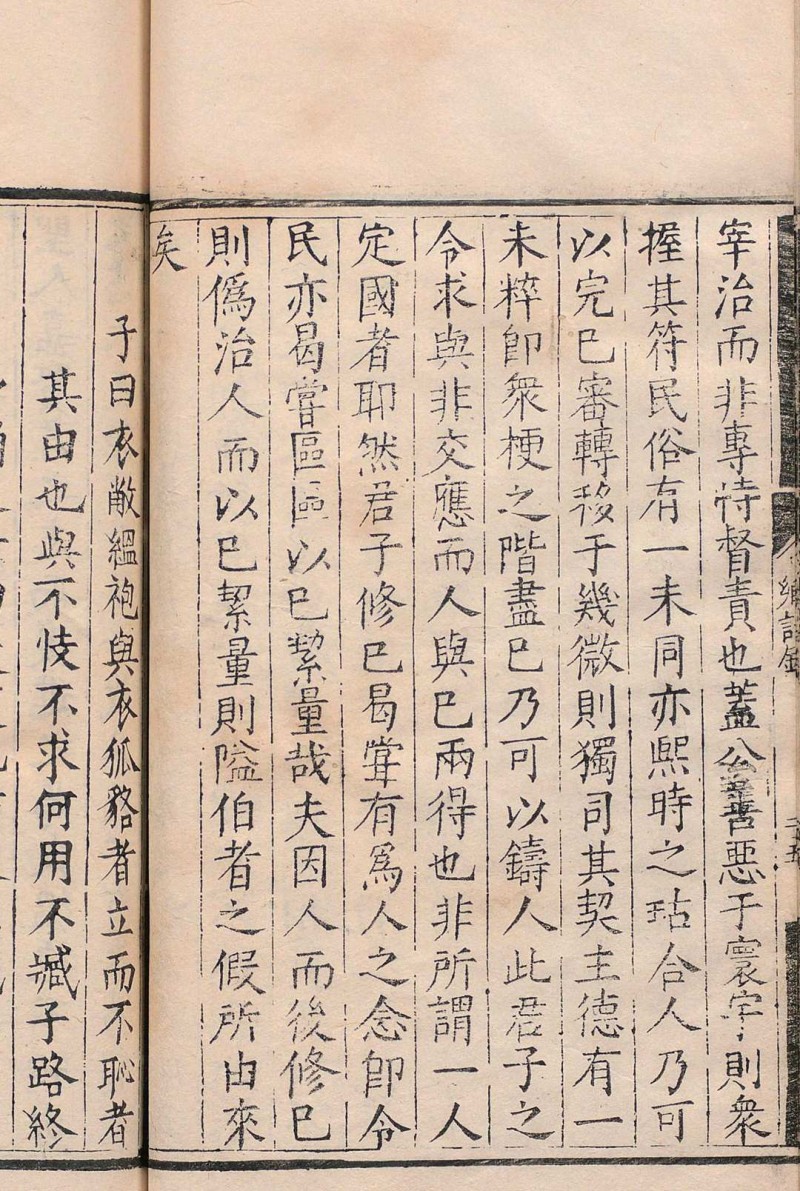 宰治而非專恃督責也蓋公善惡于寰宇則衆
握其符民俗有一未同亦熙時之玷合人乃可
以完已審轉移于幾微則獨司其契主德有一
未粹卽衆梗之階盡已乃可以鑄人此君子之
令求與非交應而人與已兩得也非所謂一人
定國者耶然君子修已曷甞有爲人之念卽令
民亦曷甞區區以已絜量哉夫因人而後修已
則僞治人而以已絜量則隘伯者之假所由來
矣
子曰衣敝緼袍與衣狐貉者立而不恥者
其由也與不忮不求何用不臧子路終